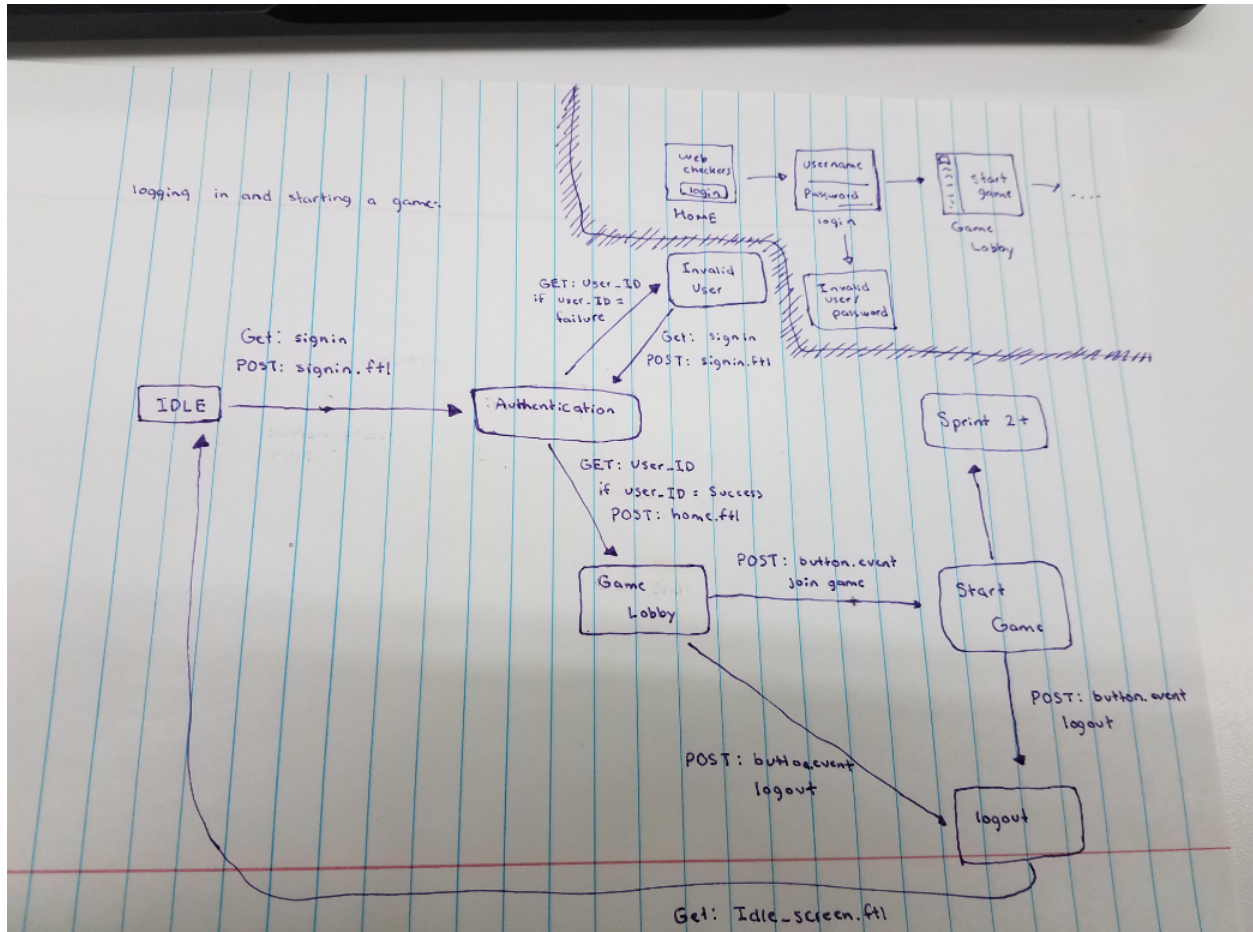 logging in and starting a game:
web
checkers
login
HOME
username
Password
login
start
game
Game
Lobby
....
Invalid
user/
password
GET: User_ID
if user_ID =
failure
Invalid
User
Get: signin
POST: signin.ftl
Get: signin
POST: signin.ftl
IDLE
Authentication
GET: User_ID
if user_ID = Success
POST: home.ftl
Sprint 2+
Game
Lobby
POST: button.event
join game
Start
Game
POST: button.event
logout
POST: button.event
logout
logout
Get: Idle_screen.ftl